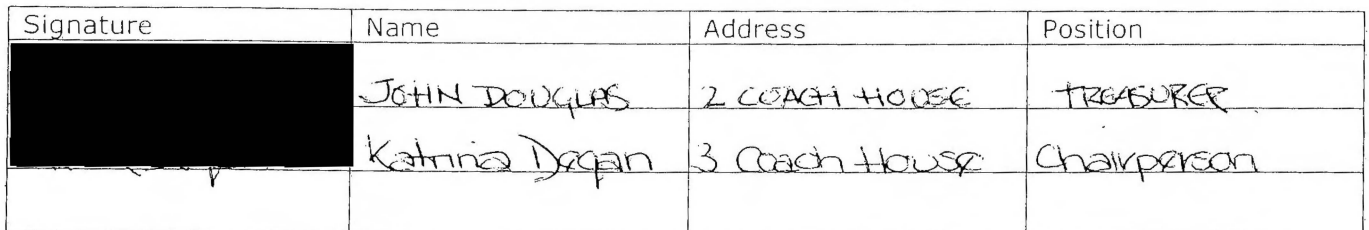 Signature Name Address Position
JOHN DOUGLAS 2 COACH HOUSE TREASURER
Katrina Degan 3 Coach House Chairperson